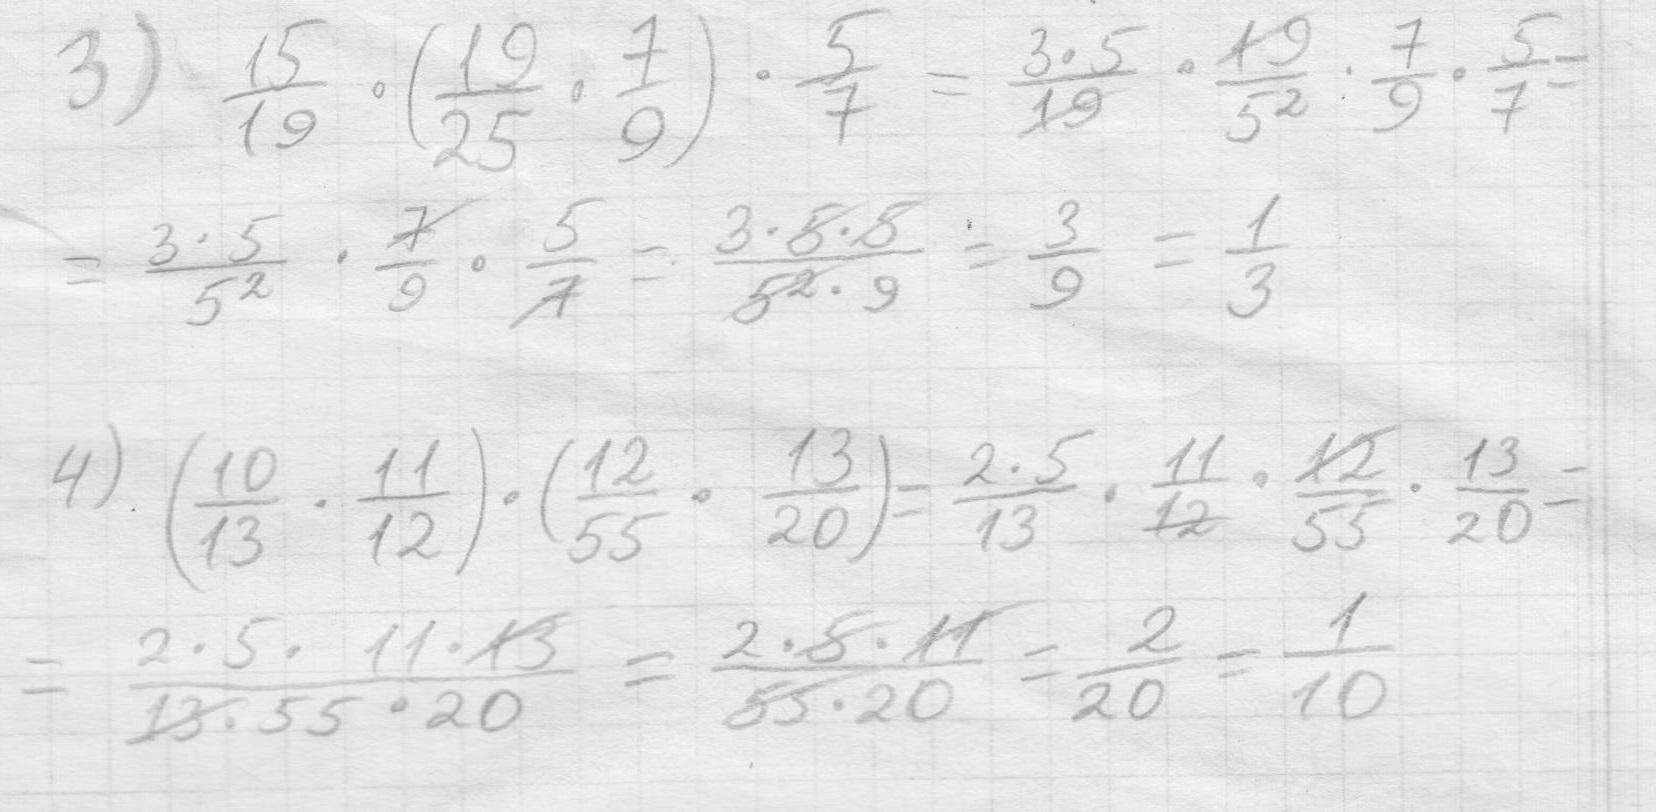 3) 15/19 · (19/25 · 7/9) · 5/7 = 3·5/19 · 19/5² · 7/9 · 5/7 =
= 3·5/5² · 7/9 · 5/7 = 3·5·5/5²·9 = 3/9 = 1/3
4) (10/13 · 11/12) · (12/55 · 13/20) = 2·5/13 · 11/12 · 12/55 · 13/20 =
= 2·5·11·13/13·55·20 = 2·5·11/55·20 = 2/20 = 1/10